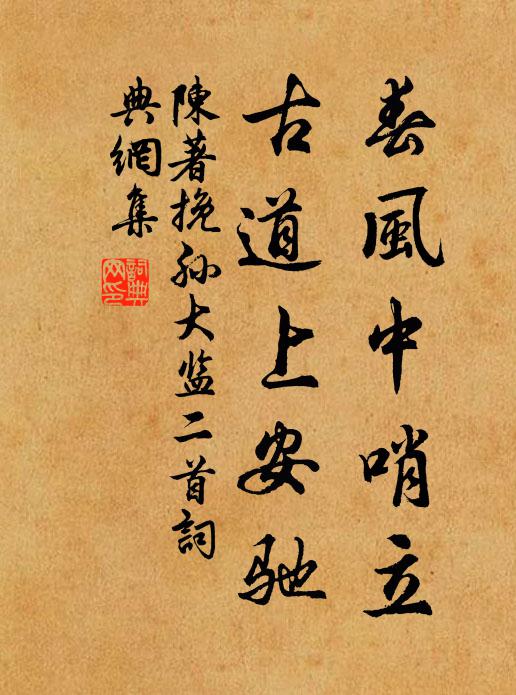 春風中哨立
古道上安馳
陳著挽孫大监二首詞
典網集
詞典
网印